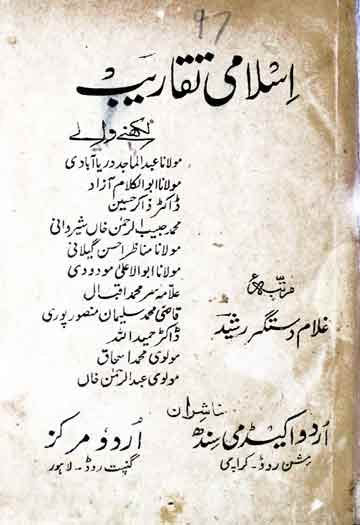 97
اسلامی تقاریب
لکھنے والے
مولانا عبدالماجد دریا آبادی
مولانا ابوالکلام آزاد
ڈاکٹر ذاکر حسین
محمد حبیب الرحمٰن خاں شیروانی
مولانا مناظر احسن گیلانی
مولانا ابوالاعلیٰ مودودی
علامہ سر محمد اقبال
قاضی محمد سلیمان منصور پوری
ڈاکٹر حمید اللہ
مولوی محمد اسحاق
مولوی عبدالرحمٰن خاں
مرتبہ
غلام دستگیر رشید
ناشران
اردو اکیڈمی سندھ
مشن روڈ۔ کراچی
اردو مرکز
گنپت روڈ۔ لاہور